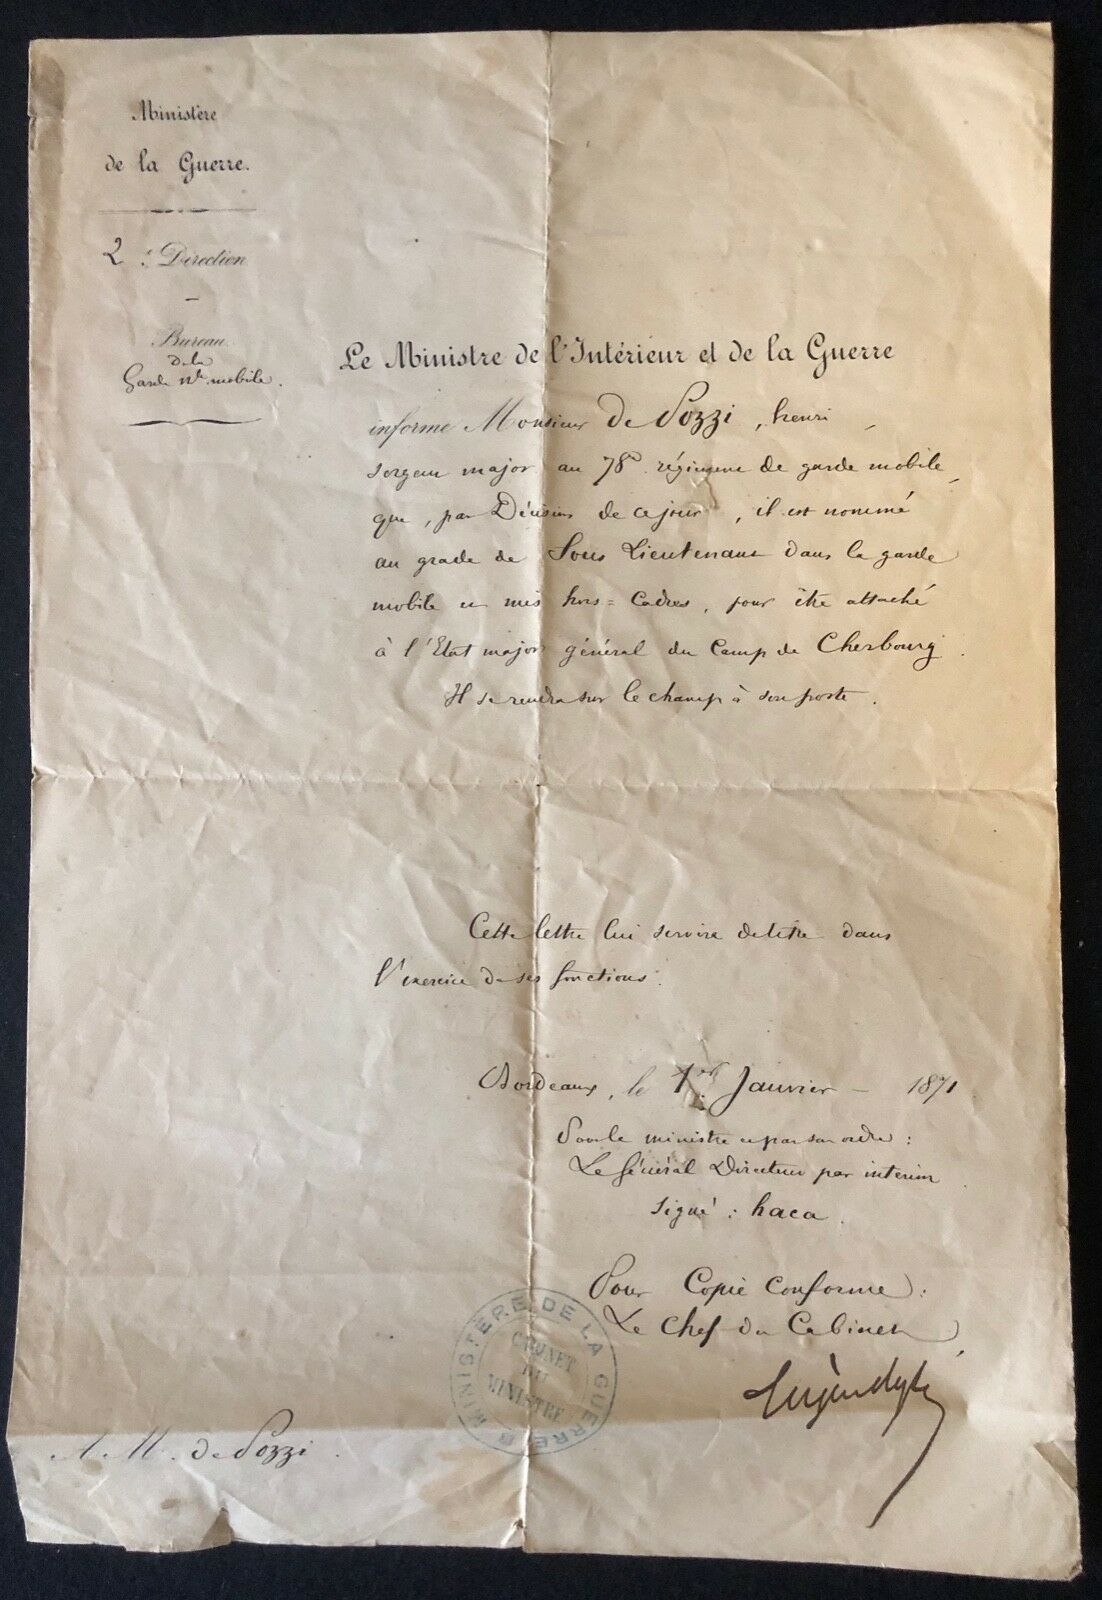 Ministère
de la Guerre.
2 e. Direction
Bureau
de la
Garde Nle mobile.
Le Ministre de l'Intérieur et de la Guerre
informe Monsieur De Pozzi, henri
sergent major au 78e régiment de garde mobile,
que, par Décision de ce jour, il est nommé
au grade de Sous Lieutenant dans la garde
mobile et mis hors=Cadres, pour être attaché
à l'Etat major général du Camp de Cherbourg.
Il se rendra sur le champ à son poste.
Cette lettre lui servira de titre dans
l'exercice de ses fonctions.
Bordeaux, le 1er Janvier 1871
Pour le ministre et par son ordre :
Le Général Directeur par interim
signé : haca.
Pour Copie Conforme :
Le Chef du Cabinet,
MINISTÈRE DE LA GUERRE
CABINET
DU
MINISTRE
A M. de Pozzi.